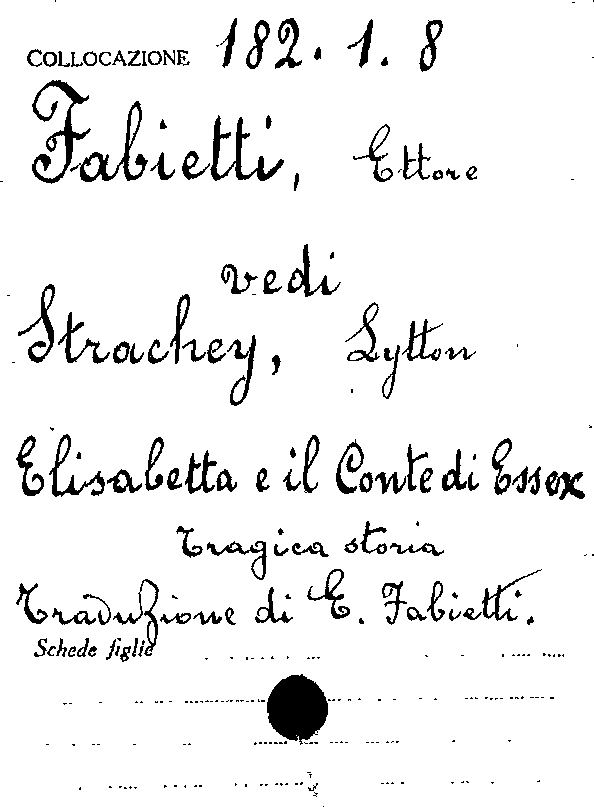 COLLOCAZIONE 182. 1. 8
Fabietti, Ettore
vedi
Strachey, Lytton
Elisabetta e il Conte di Essex
Tragica storia
Traduzione di E. Fabietti.
Schede figlie